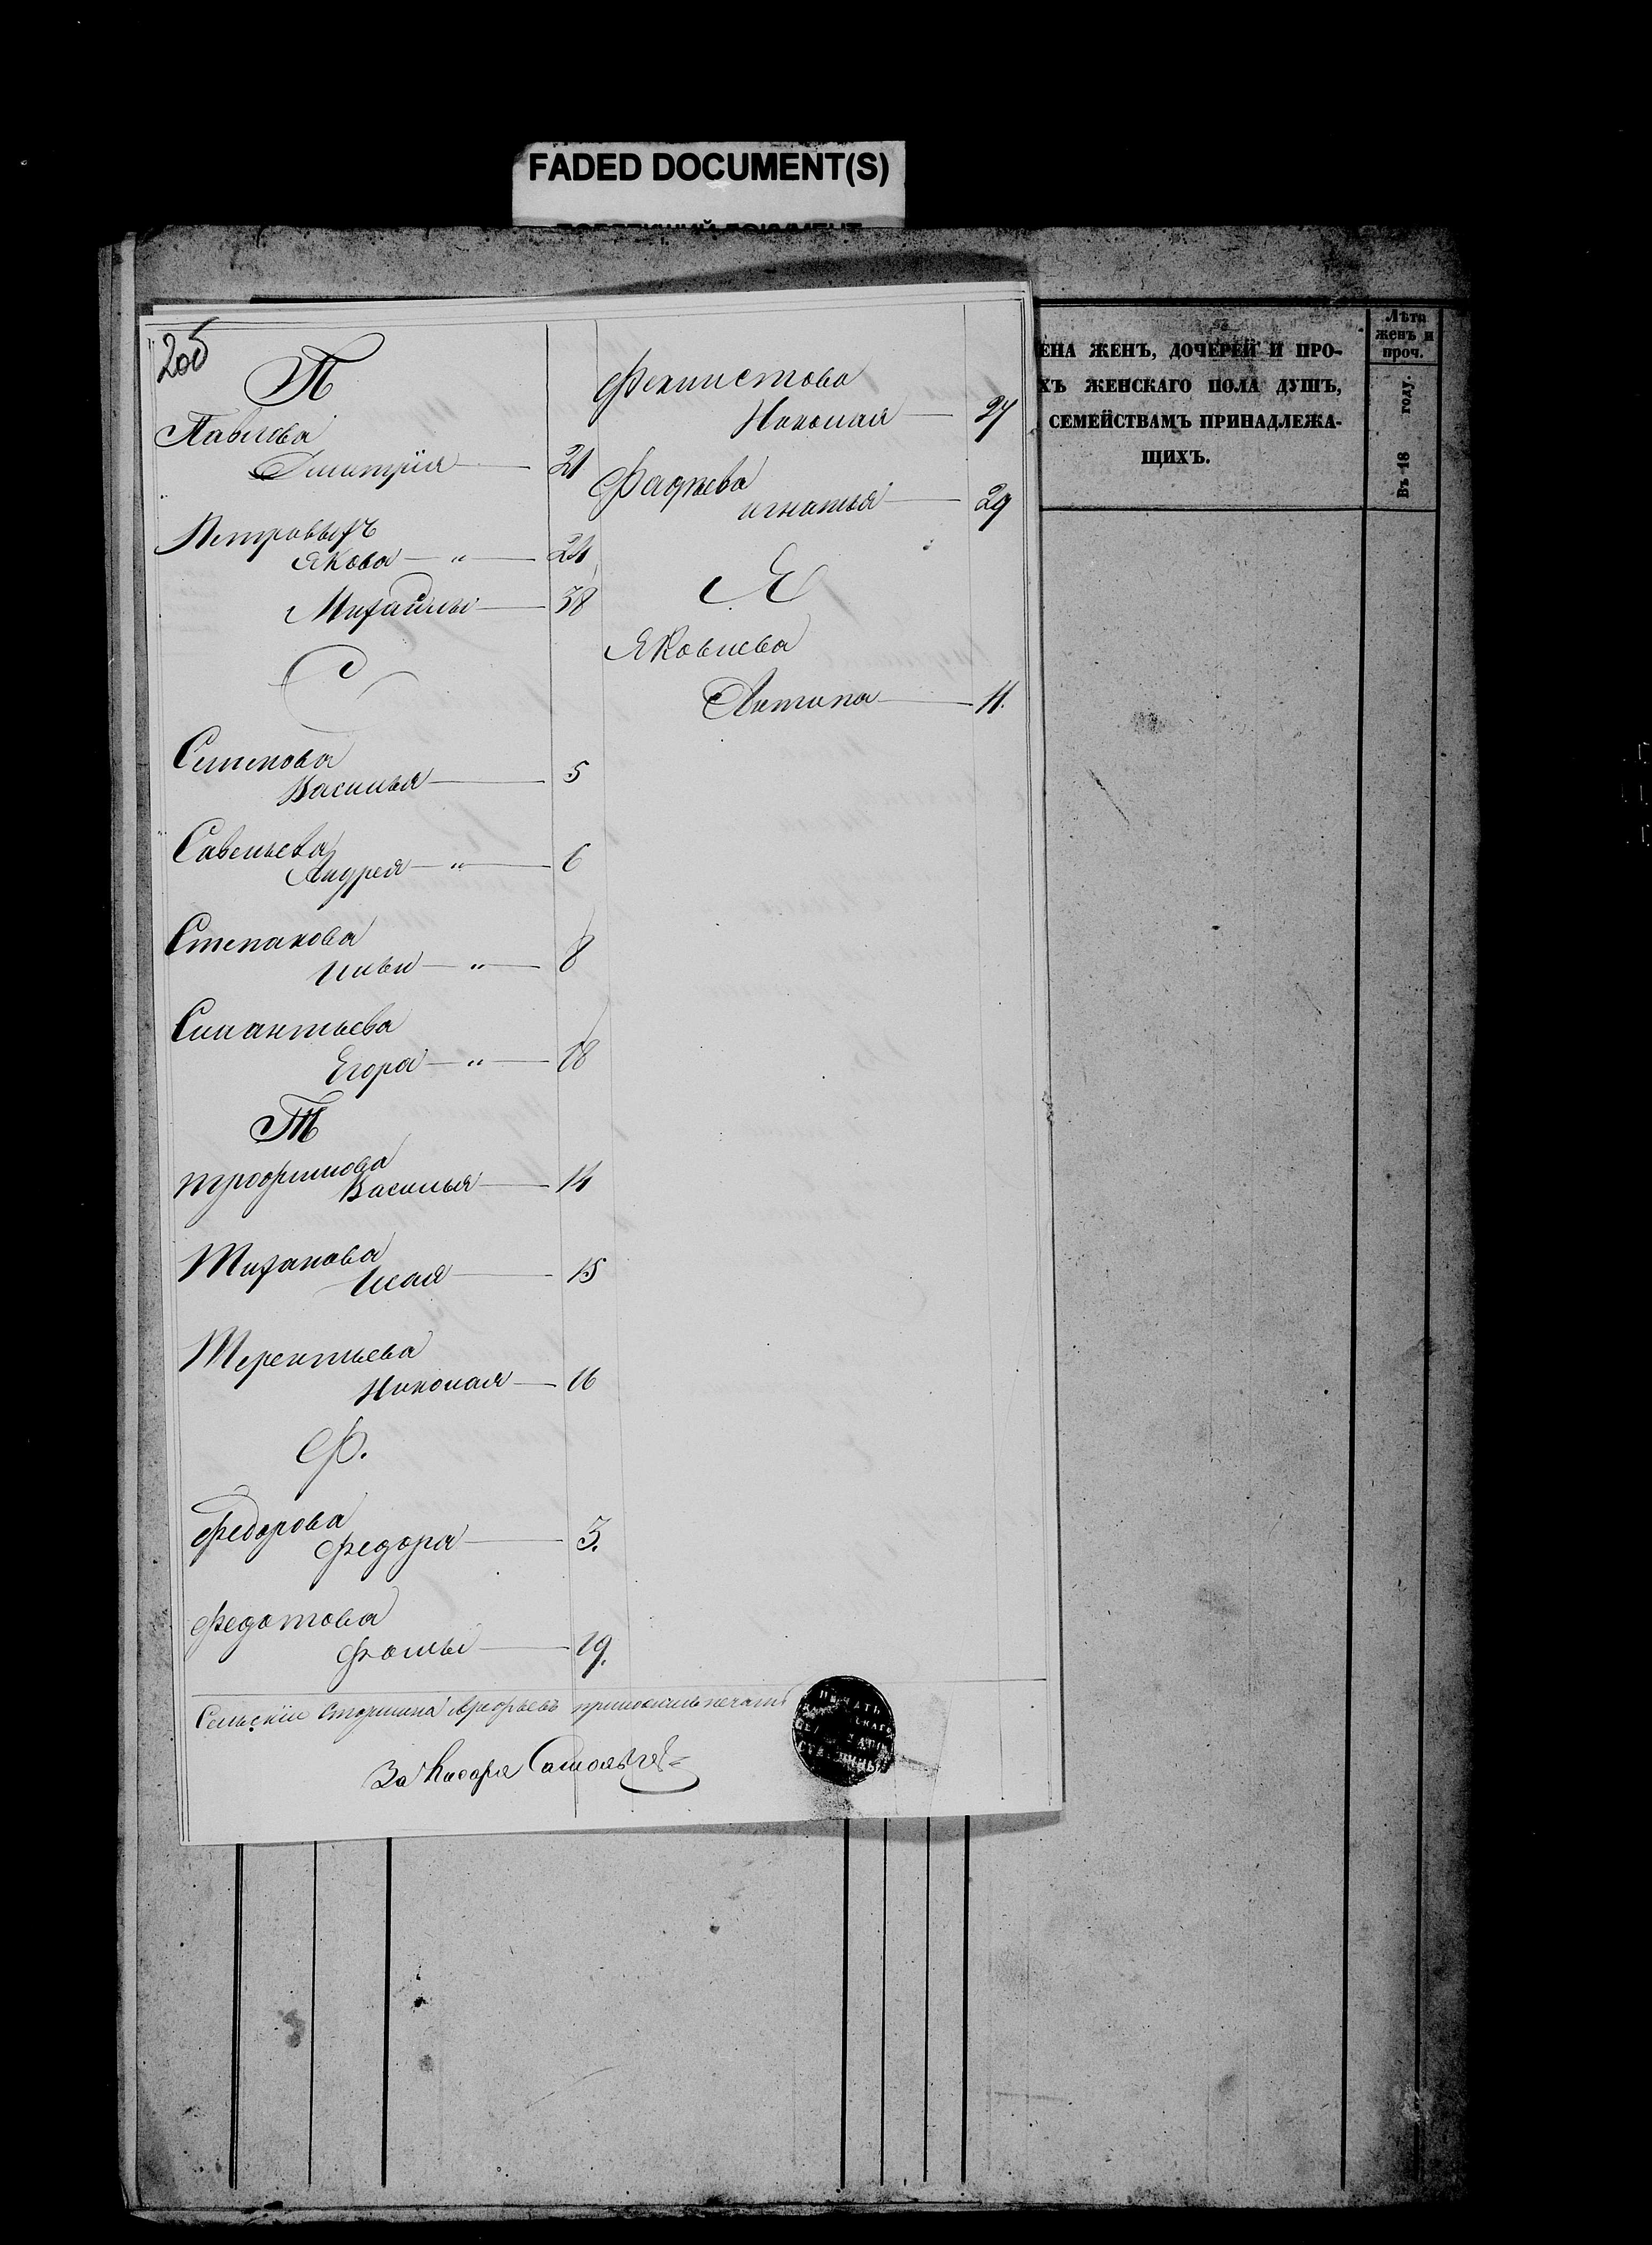 FADED DOCUMENT(S)
205
П
Павлова
Дмитрія 21
Петровыхъ
Якова — „ — 24
Михайлы 38
С
Семенова
Василья 5
Савельева
Андрея — „ — 6
Степанова
Ильи — „ — 8
Силантьева
Егора — „ — 18
Т
Трофимова
Василья 14
Тиханова
Исая 15
Терентьева
Николая 16
Ф.
Федорова
Федора 3.
Федотова
Фомы 19.
Феклистова
Николая 27
Фадѣева
Игнатья 29
Я
Яковлева
Антипа 11.
Сельскій Старшина Арефьевъ приложилъ печать
За Писаря
ПЕЧАТЬ
СТАРШИНЫ
ЕНА ЖЕНЪ, ДОЧЕРЕЙ И ПРО-
ХЪ ЖЕНСКАГО ПОЛА ДУШЪ,
СЕМЕЙСТВАМЪ ПРИНАДЛЕЖА-
ЩИХЪ.
Лѣта
женъ и
проч.
Въ 18 году.